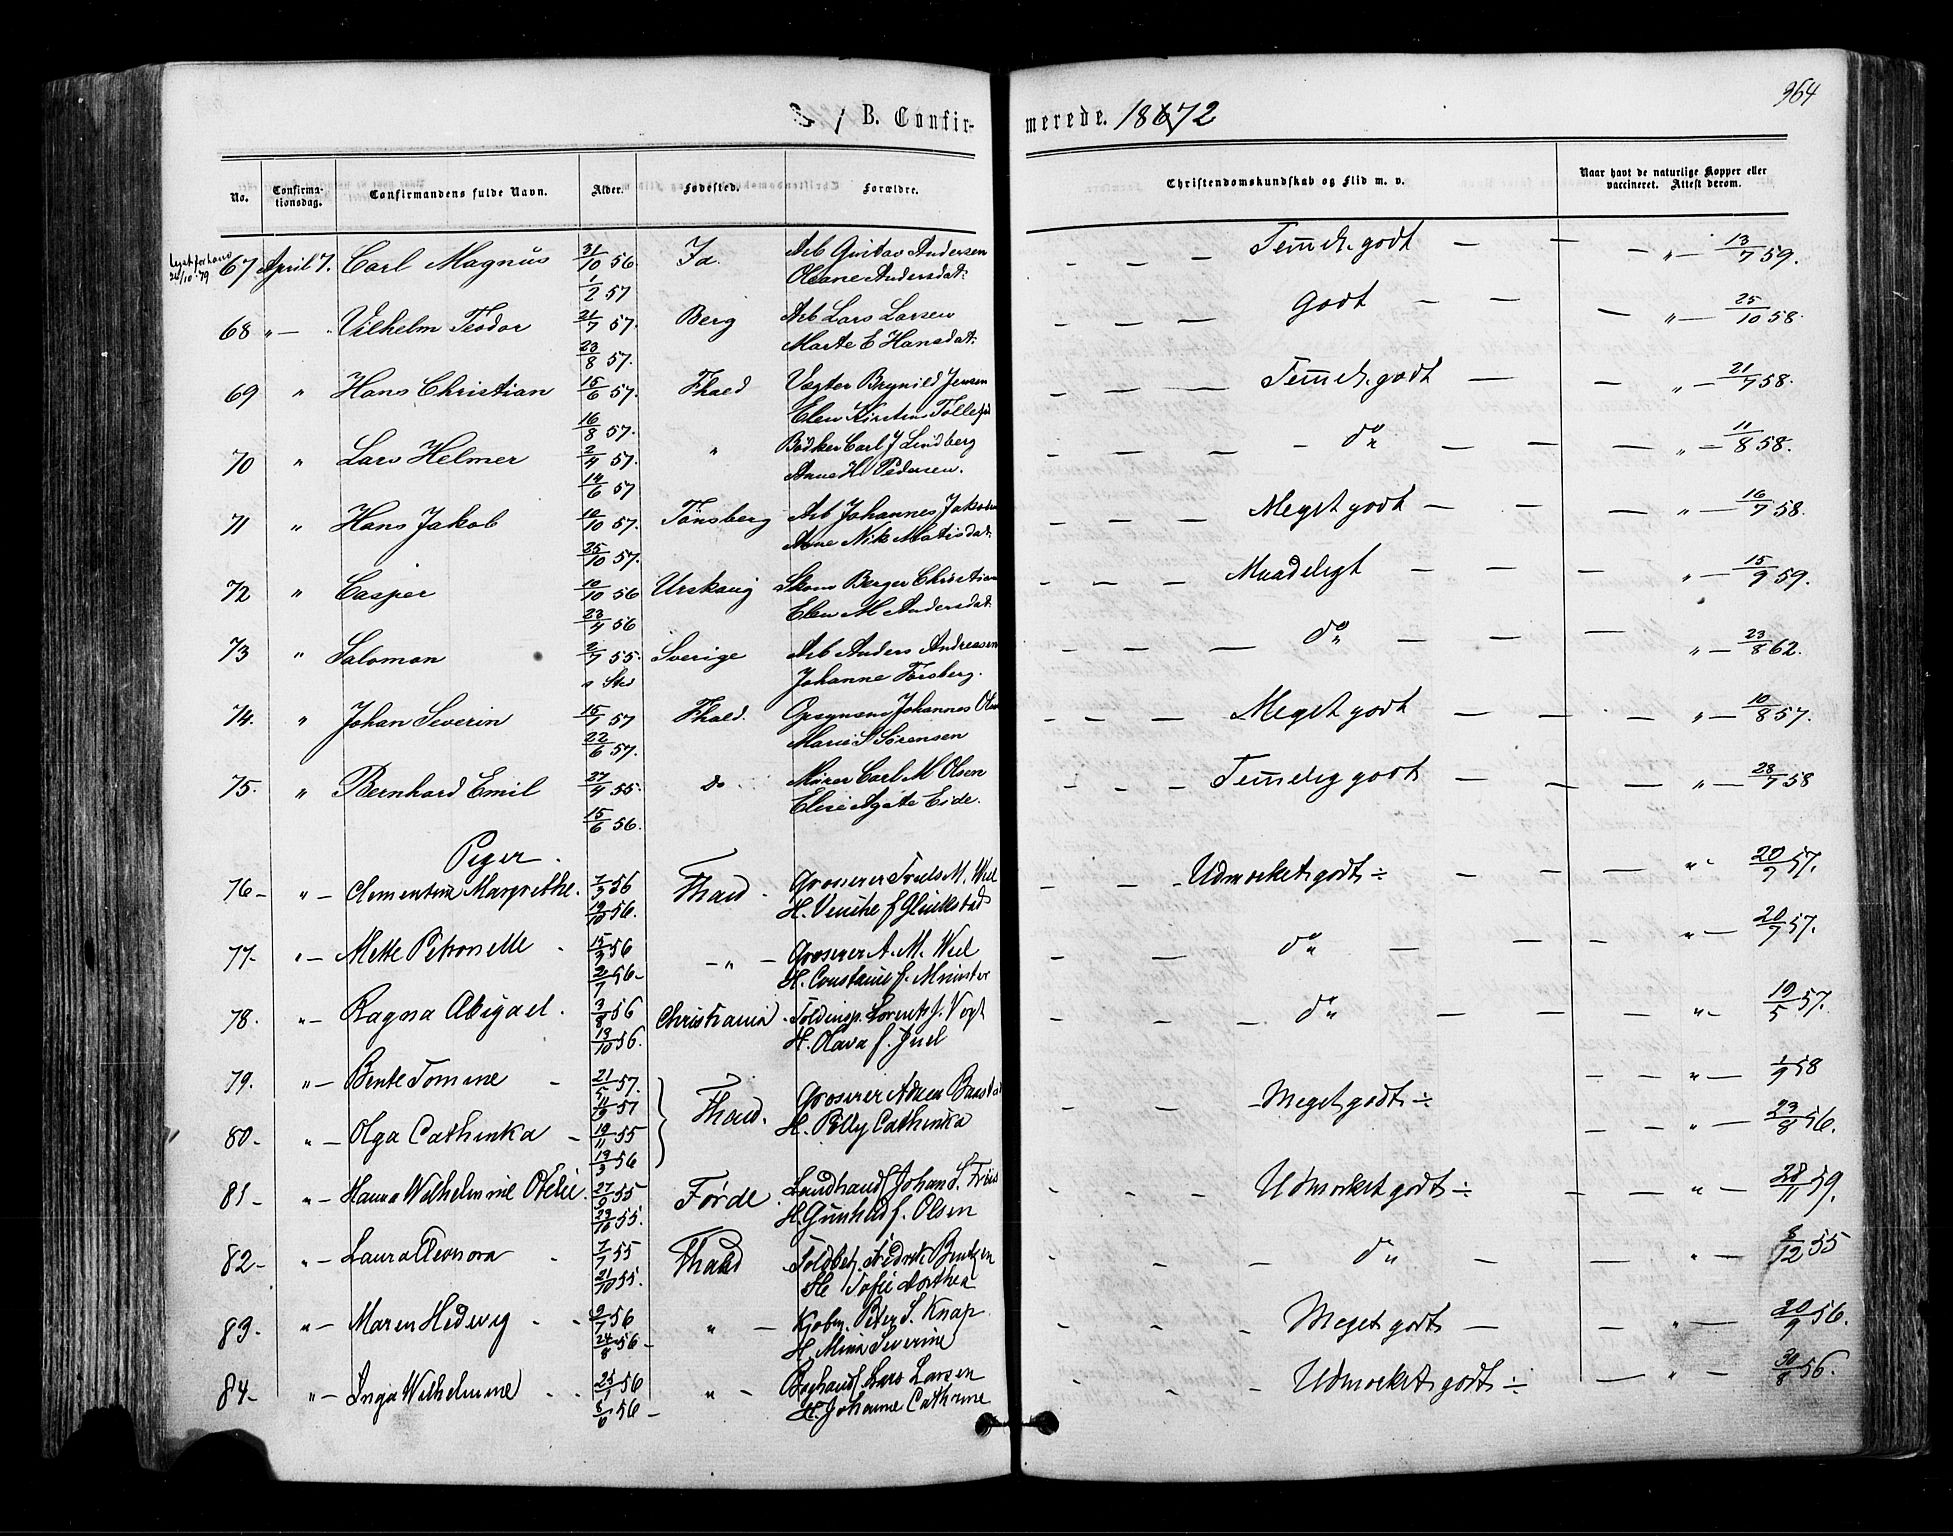 364
B. Confirmerede. 1872
No. Confirmationsdag. Confirmandens fulde Navn. Alder. Fødested. Forældre. Christendomskundskab og Flid m. v. Naar havt de naturlige Kopper eller vaccineret. Attest derom.
67 April 7. Carl Magnus 31/10 56 Id. Arb Gustav Andersen Temel. godt — — " — 13/7 59.
1/2 57 Oleane Andersdat.
68 " — Vilhelm Teodor 21/7 57. Berg Arb Lars Larsen Godt — — — " — 25/10 58.
23/8 57. Marte E Hansdat.
69 " Hans Christian 15/6 57. Fhald Vegter Brynild Jensen Temel. godt — — " — 21/7 58.
16/8 57. Elen Kirstine
70 " Lars Helmer 2/4 57. " Bødker Carl J Lindberg do — — — " — 11/8 58.
14/6 57 Anne H. Pedersen.
71 " Hans Jakob 10/10 57. Tønsberg Arb Johannes Meget godt — — — " — 16/7 58.
25/10 57. Anne Nik Matisdat.
72 " Casper 10/10 56 Urskoug Skom Berger Christian Maadeligt — — — " — 15/9 59.
23/4 56 Elen M Andersdat.
73 " Salomon 2/7 55. Sverige Arb Anders Andreassen do — — — " — 23/8 62.
Johanne Forsberg.
74. " Johan Severin 15/1 57 Fhald. Johannes Meget godt — — — " — 10/8 57.
22/6 57. Marie S Sørensen
75. " Bernhard Emil 27/4 55. do Murer Carl M Olsen Temelig godt — — — " — 28/7 58
15/6 56. Elise Agate Eide.
Piger.
76 — " — Clementine Margrethe. 7/9 56 Fhald. Grosserer Truls M. Wiel Udmærket godt ÷ — — — " 20/7 57.
19/10 56. H. Venche f Glückstad
77. " — Mette Petronelle 15/3 56 — " — Grosserer A. M. Wiel do — — — " — 20/7 57.
2/7 56 — H. Constance f. Münster
78. " — Ragna Abigael. 3/8 56 Christiania Toldinsp. Lorents J. Vogt do — — — " — 19/5 57.
13/10 56. H. Olava f. Juel
79. " — Bente Tomine 21/5 57. Fhald. Grosserer Meget godt ÷ — — " — 1/9 58
11/9 57 H. Polly Cathinka
80. " — Olga Cathinka — 19/11 55 — — " — 23/8 56.
13/3 56
81 — " — Hanna Wilhelmine Otelie. 27/9 55 Førde Landhand. Johan S. Friis Udmærket godt ÷ — — " — 28/11 59.
23/10 55. H Gunhild f. Olsen
82 — " — Laura Eleonora 7/7 55 Fhald Toldbetj. Fredrik Bentzen do — — " — 8/12 55
21/10 55. H. Tofie Dorthea
83. " — Maren Hedevig 9/7 56 " — Kjøbm. Peter S. Knap Meget godt — — — " — 20/9 56.
24/8 56 — H. Mina Severine
84 — " — Inga Wilhelmine 25/1 56 " — Boghand. Lars Larsen Udmærket godt ÷ — " — 30/8 56.
8/6 56 — H. Johanne Cathrine